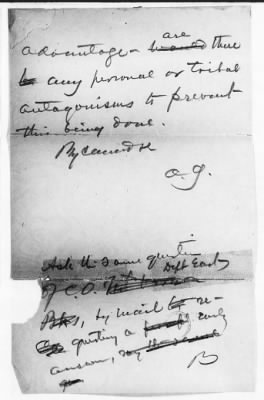 are
advantage - would there
be any personal or tribal
antagonisms to prevent
this being done.
By command
A.G.
Ask the same question
Dept East
of C.O.
by mail to re-
questing a early
answer,
B